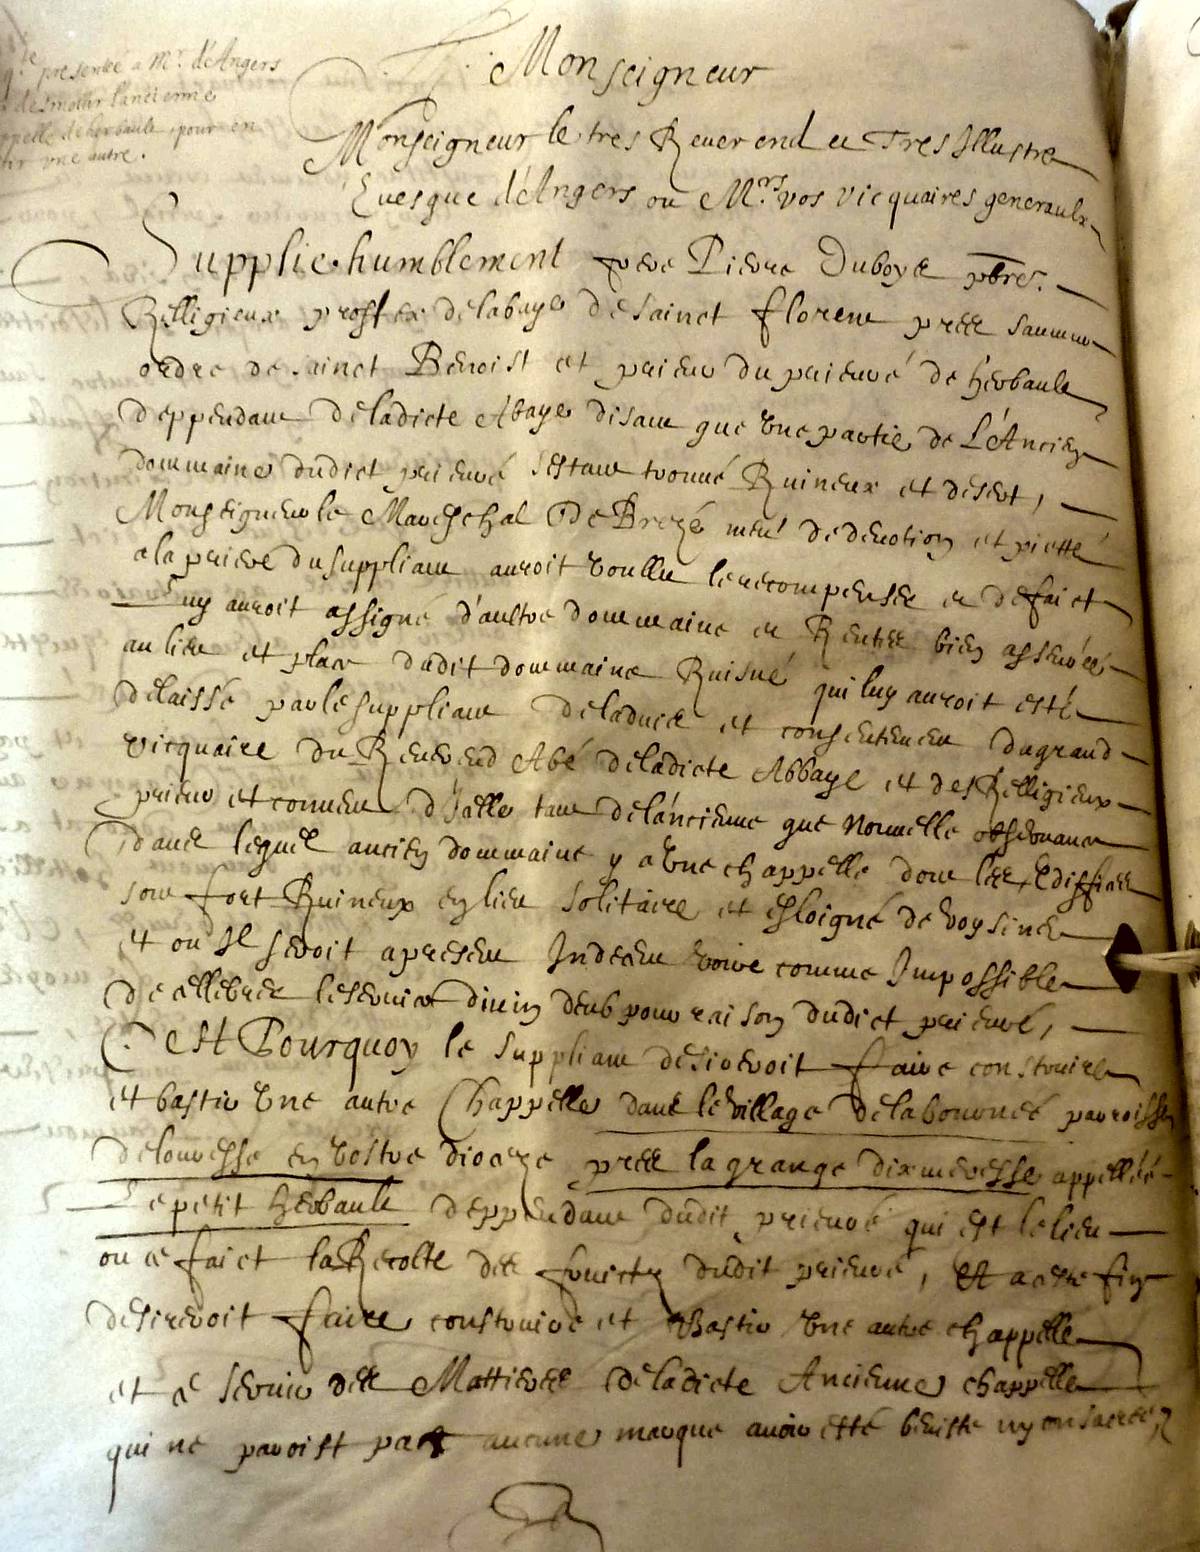 presentée a Mr. d'Angers
desmolir l'ancienne
chappelle de herbaule, pour en
bastir une autre.
Monseigneur
Monseigneur le tres Reverend et Tres Illustre
Evesque d'Angers ou Mrs. vos vicquaires generaulx
Supplie humblement frere Pierre Duboys pbre.
Relligieux proffex de labaye de sainct florent pres saumur
ordre de sainct Benoist et prieur du prieuré de herbaule
deppendant de ladicte Abaye disant que une partie de L'Ancien
dommaine dudict prieuré sestant trouvé Ruineux et desert,
Monseigneur le Mareschal De Brezé meu de devotion et pietté
a la priere du suppliant auroit voullu le recompenser et de faict
Luy auroit assigné d'aultre dommaine et Rentes bien asseurées
au lieu et place dudit dommaine Ruisné qui luy auroit esté
delaissé par le suppliant de ladvis et consentement du grand
vicquaire du Reverend Abé de ladicte Abbaye et des Relligieux
prieur et convent d'Icelle tant de l'ancienne que nouvelle observance
Dans lequel ancien dommaine y a une chappelle dont les Ediffices
sont fort Ruineux en lieu solitaire et esloigné de voysines
et ou Il seroit a present Indecent voire comme Impossible
de cellebrer le service divin deub pour raison dudict prieuré,
C'est Pourquoy le suppliant desireroit faire construire
et bastir une autre Chappelle dans le village de la bournée parroisse
de louresse en vostre dioceze pres la grange dixmeresse appellée
Le petit herbaule deppendant dudit prieuré qui est le lieu
ou ce faict la Recolte des fruictz dudit prieuré, Et a ceste fin
desireroit faire construire et Bastir une autre chappelle
et ce servir des Mattieres de ladicte Ancienne chappelle
qui ne paroist pas aucune marque avoir esté beniste ny consacrée,